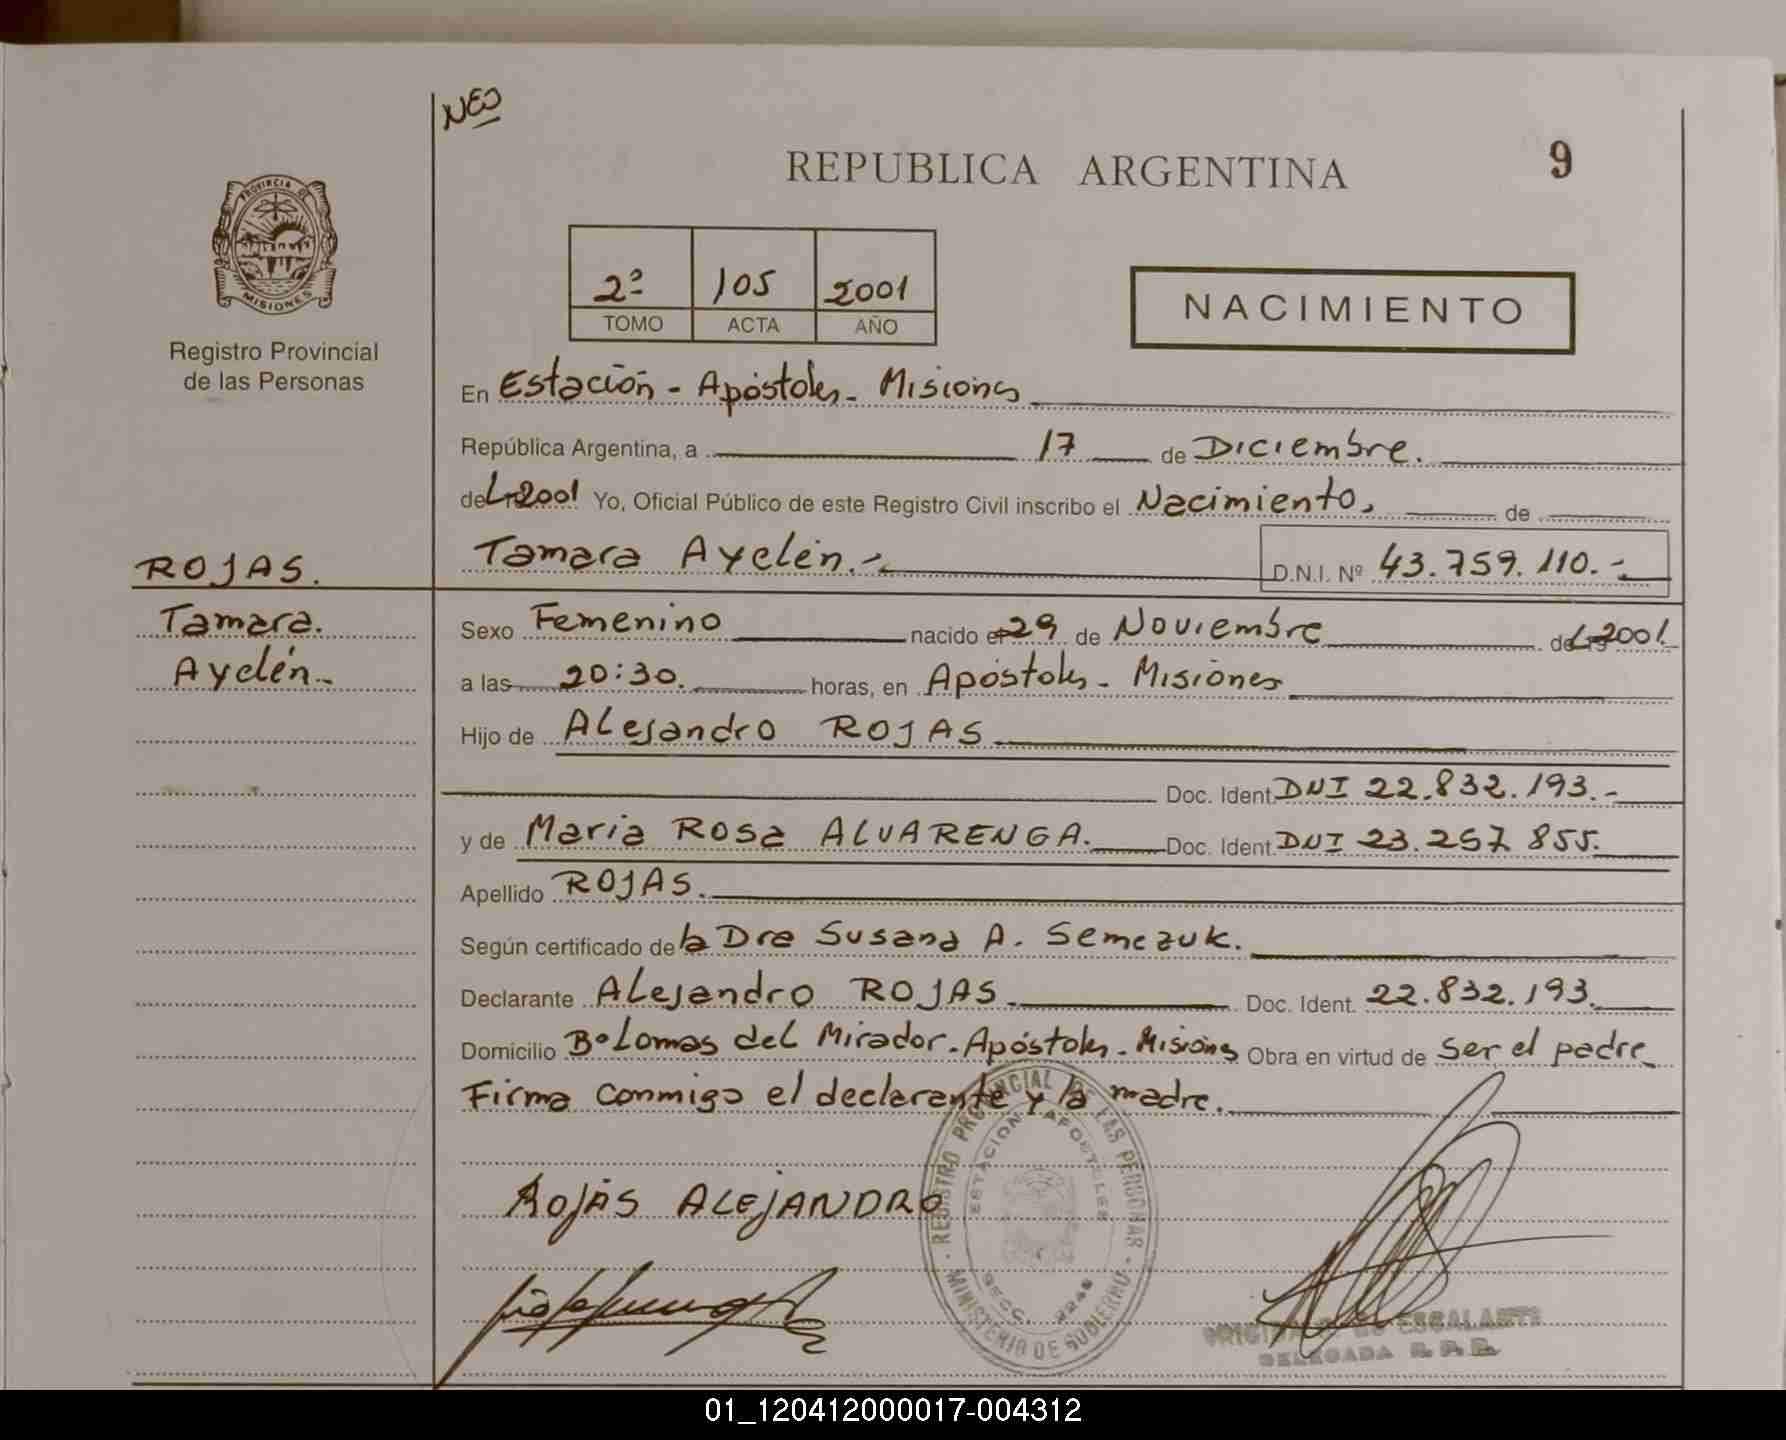 NEO
REPUBLICA ARGENTINA
9
PROVINCIA DE
MISIONES
Registro Provincial
de las Personas
2º 105 2001
TOMO ACTA AÑO
NACIMIENTO
En Estación - Apóstoles - Misiones
República Argentina, a 17 de Diciembre.
de L 2001 Yo, Oficial Público de este Registro Civil inscribo el Nacimiento, de
ROJAS.
Tamara Ayelén.- D.N.I. Nº 43.759.110.-
Tamara.
Sexo Femenino nacido el 29 de Noviembre de L 2001.
Ayelén-
a las 20:30. horas, en Apóstoles - Misiones
Hijo de Alejandro ROJAS
Doc. Ident. DNI 22.832.193.-
y de Maria Rosa ALVARENGA. Doc. Ident. DNI 23.257.855.
Apellido ROJAS.
Según certificado de la Dra Susana A. Semczuk.
Declarante Alejandro ROJAS. Doc. Ident. 22.832.193.
Domicilio Bº Lomas del Mirador. Apóstoles - Misiones Obra en virtud de ser el padre
Firma conmigo el declarante y la madre.
ROJAS ALEJANDRO
REGISTRO PROVINCIAL DE LAS PERSONAS
ESTACION APOSTOLES
SECC. 2246
MINISTERIO DE GOBIERNO
ESCALANTE
DELEGADA R.P.P.
01_120412000017-004312